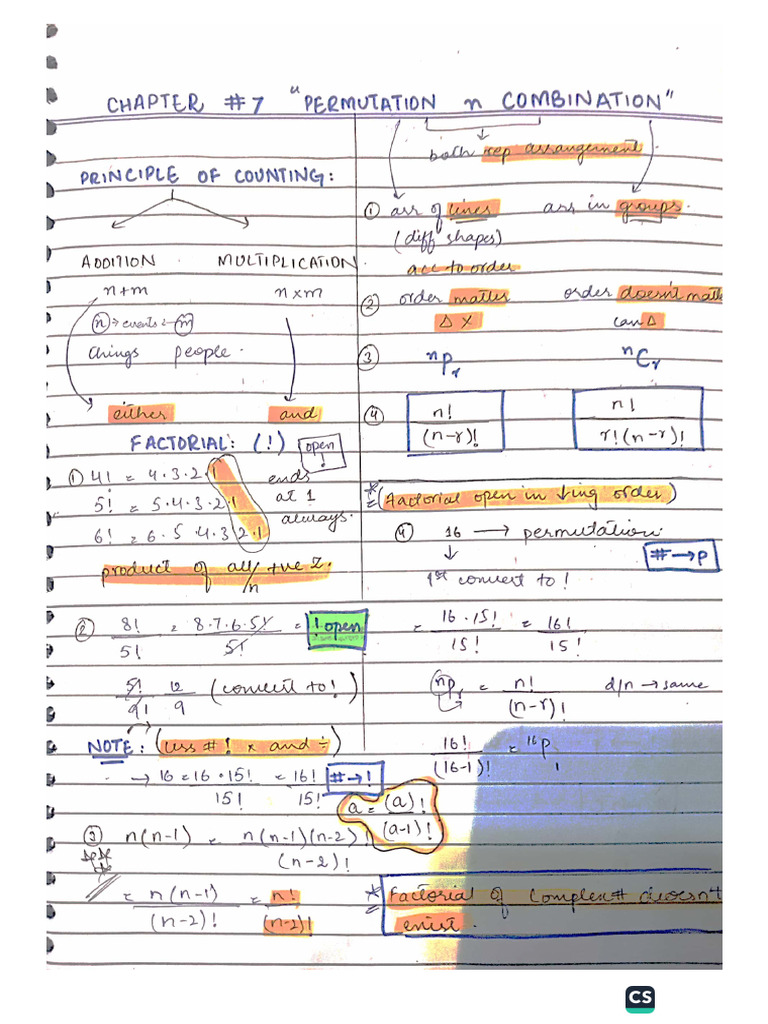 CHAPTER #7 "PERMUTATION n COMBINATION"
both rep arrangement.
PRINCIPLE OF COUNTING:
ADDITION MULTIPLICATION
n+m n×m
(n) → events ← (m)
things people.
either and
FACTORIAL: (!) open !
① 4! = 4.3.2.1 ends
5! = 5.4.3.2.1 at 1
6! = 6.5 4.3 2.1 always.
product of all +ve Z.
n
② 8!/5! = 8.7.6.5!/5! = ! open
5!/9! 12/9 (convert to !)
NOTE: (less # ! × and ÷)
→ 16 = 16.15!/15! = 16!/15! #→!
a = (a)!/(a-1)!
③ n(n-1) = n(n-1)(n-2)!/(n-2)!
= n(n-1)/(n-2)! = n!/(n-2)!
① arr of lines arr in groups.
(diff shapes)
acc to order
② order matter order doesn't matte
Δ X can Δ
③ ⁿPᵣ ⁿCᵣ
④ n!/(n-r)! n!/r!(n-r)!
* (factorial open in ↓ing order)
④ 16 → permutation
↓ #→P
1st convert to !
= 16.15!/15! = 16!/15!
nPᵣ = n!/(n-r)! d/n → same
16!/(16-1)! = ¹⁶P₁
* Factorial of complex # doesn't
exist.
CS